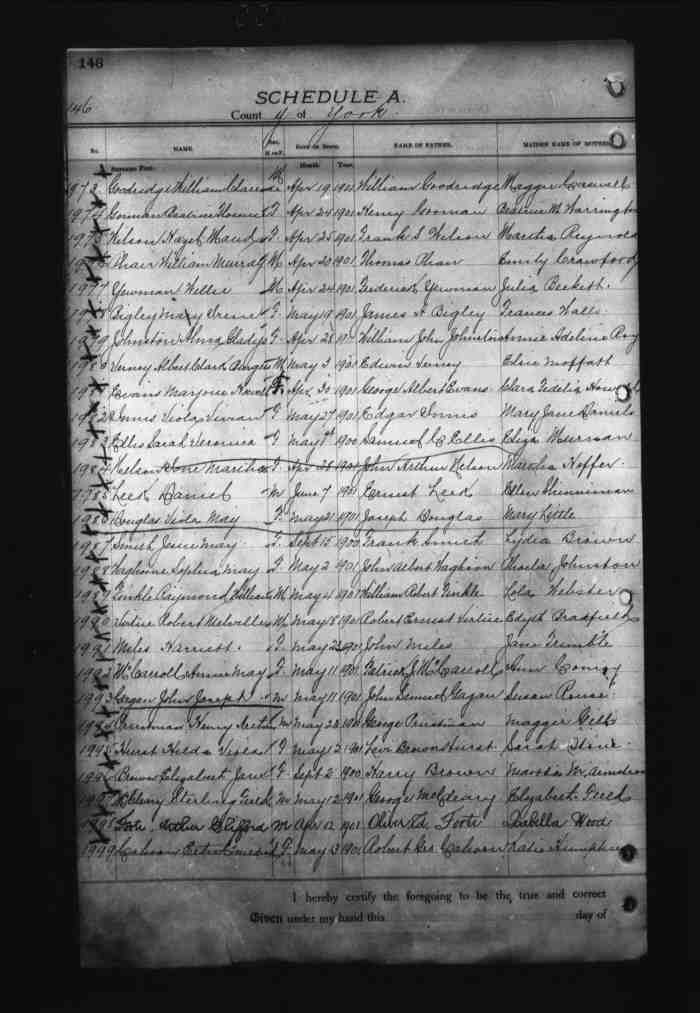 146
SCHEDULE A.
146
County of York.
No. NAME. Sex. M or F. Date of Birth. NAME OF FATHER. MAIDEN NAME OF MOTHER.
Surname First. Month. Year.
1973 Goodridge William Clarence M Apr 19 1901 William Goodridge Maggie
1974 Gorman Beatrice F Apr 24 1901 Henry Gorman Beatrice M. Warrington
1975 Wilson Hazel Maud F Apr 25 1901 Frank S Wilson Martha Reynolds
1976 Phair William Murray M Apr 20 1901 Thomas Phair Emily Crawford
1977 Yewman Willie M Apr 24 1901 Frederick Yewman Julia Beckett.
1978 Bigley Mary Irene F May 19 1901 James A Bigley Frances Walls
1979 Johnston Alma Gladys F Apr 28 1901 William John Johnston Annie Adeline Roy
1980 Verney Albert Clark M May 3 1901 Edwin Verney Elsie Moffatt
1981 Evans Marjorie F Apr 30 1901 George Albert Evans Clara Fidelia
1982 Innis Viola Vivian F May 27 1901 Edgar Innis Mary Jane Daniels
1983 Ellis Sarah Veronica F May 1st 1900 Samuel C Ellis Eliza
1984 Nelson Marsha F Apr 28 1901 John Arthur Nelson Keffer.
1985 Leek Daniel M June 7 1901 Ernest Leek Ellen
1986 Douglas Viola May F May 21 1901 Joseph Douglas Mary Little
1987 Smith Jane May F Sept 15 1900 Frank Smith Lydia Brown
1988 Waghorne Sophia May F May 2 1901 John Albert Waghorn Johnston
1989 Finkle Raymond M May 4 1901 William Robert Finkle Lola Webster
1990 Virtue Robert Melville M May 8 1901 Robert Ernest Virtue Edyth Bradfield
1991 Miles Harriett F May 23 1901 John Miles Jane Trimble
1992 McCarroll Annie May F May 11 1901 Patrick J. McCarroll Ann
1993 Gagan John Joseph M May 11 1901 John Samuel Gagan Susan Rouse
1994 Henry Arthur M May 28 1901 George Maggie
1995 Hurst Hilda Viola F May 12 1901 Levi Brown Hurst Sarah Stone
1996 Brown Elizabeth Jane F Sept 2 1900 Harry Brown Martha M. Armstrong
1997 McCleary Sterling Field M May 12 1901 George McCleary Elizabeth Field
1998 Foote Arthur Clifford M Apr 12 1901 Oliver Ed. Foote Isabella Wood
1999 Calhoun F May 13 1901 Robert Geo Calhoun Katie Humphrey
I hereby certify the foregoing to be the true and correct
Given under my hand this day of